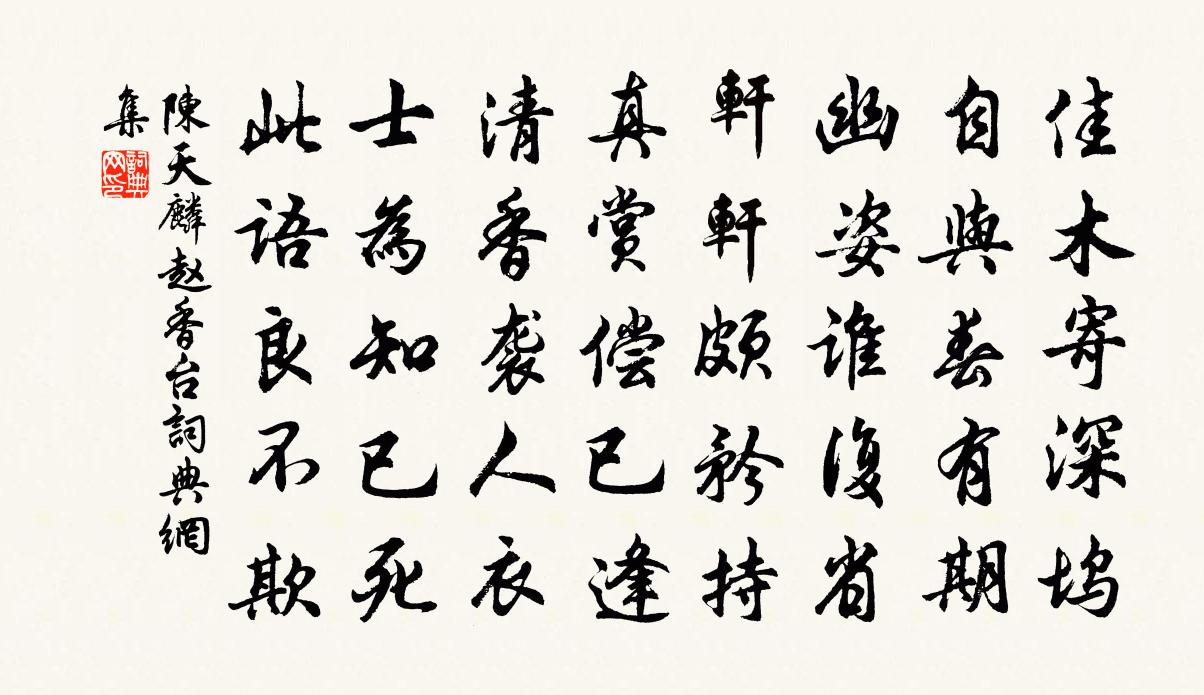 佳木寄深坞
自與春有期
幽姿谁復省
軒軒頗矜持
真賞偿已逢
清香袭人衣
士為知已死
此语良不欺
陳天麟赵香台詞典網
集
詞典
网印